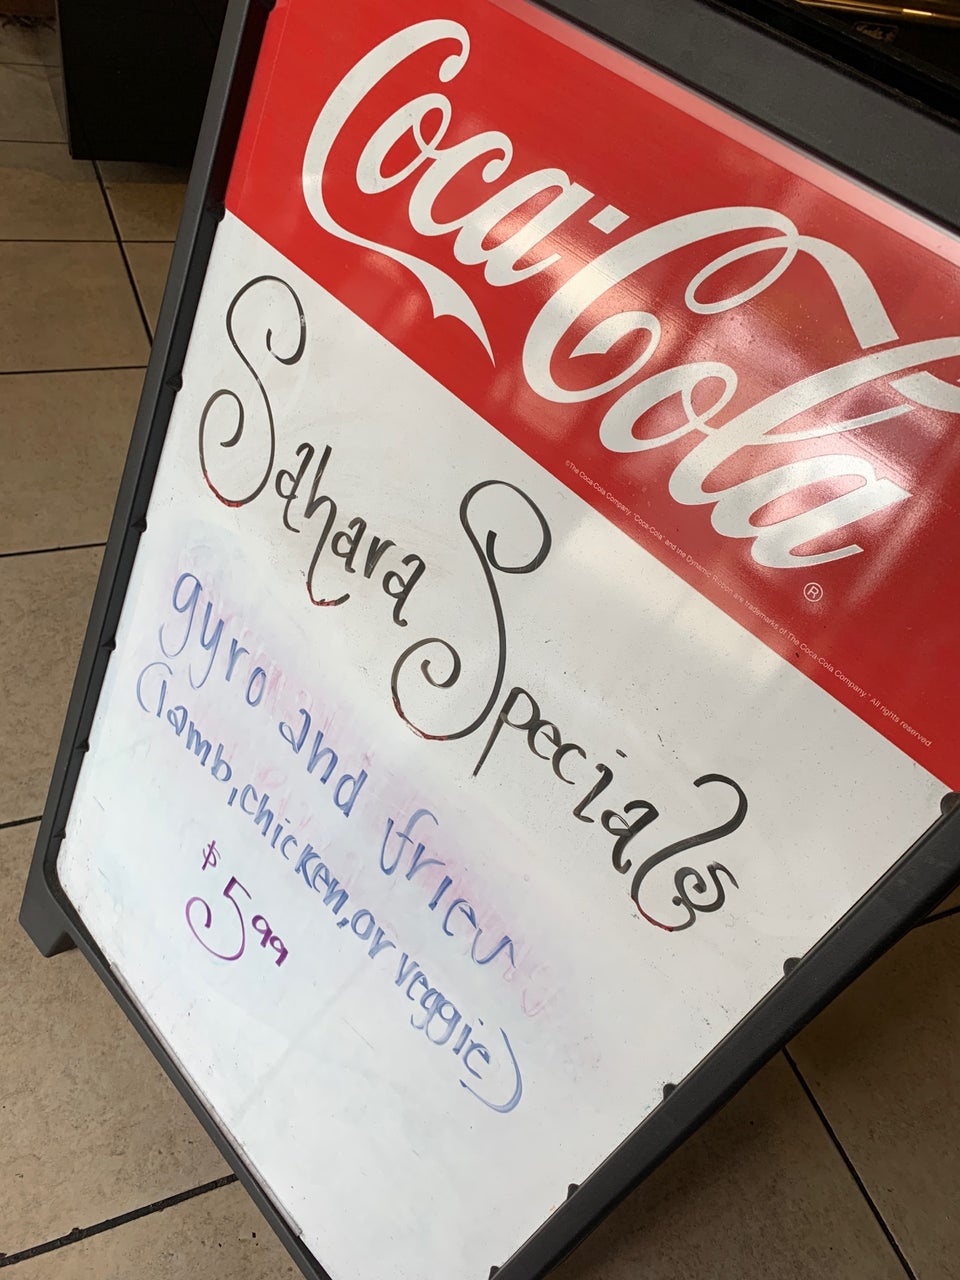 Coca-Cola
®
©The Coca-Cola Company. "Coca-Cola" and the Dynamic Ribbon are trademarks of The Coca-Cola Company. All rights reserved
Sahara Specials
gyro and fries
(lamb, chicken, or veggie)
$5.99